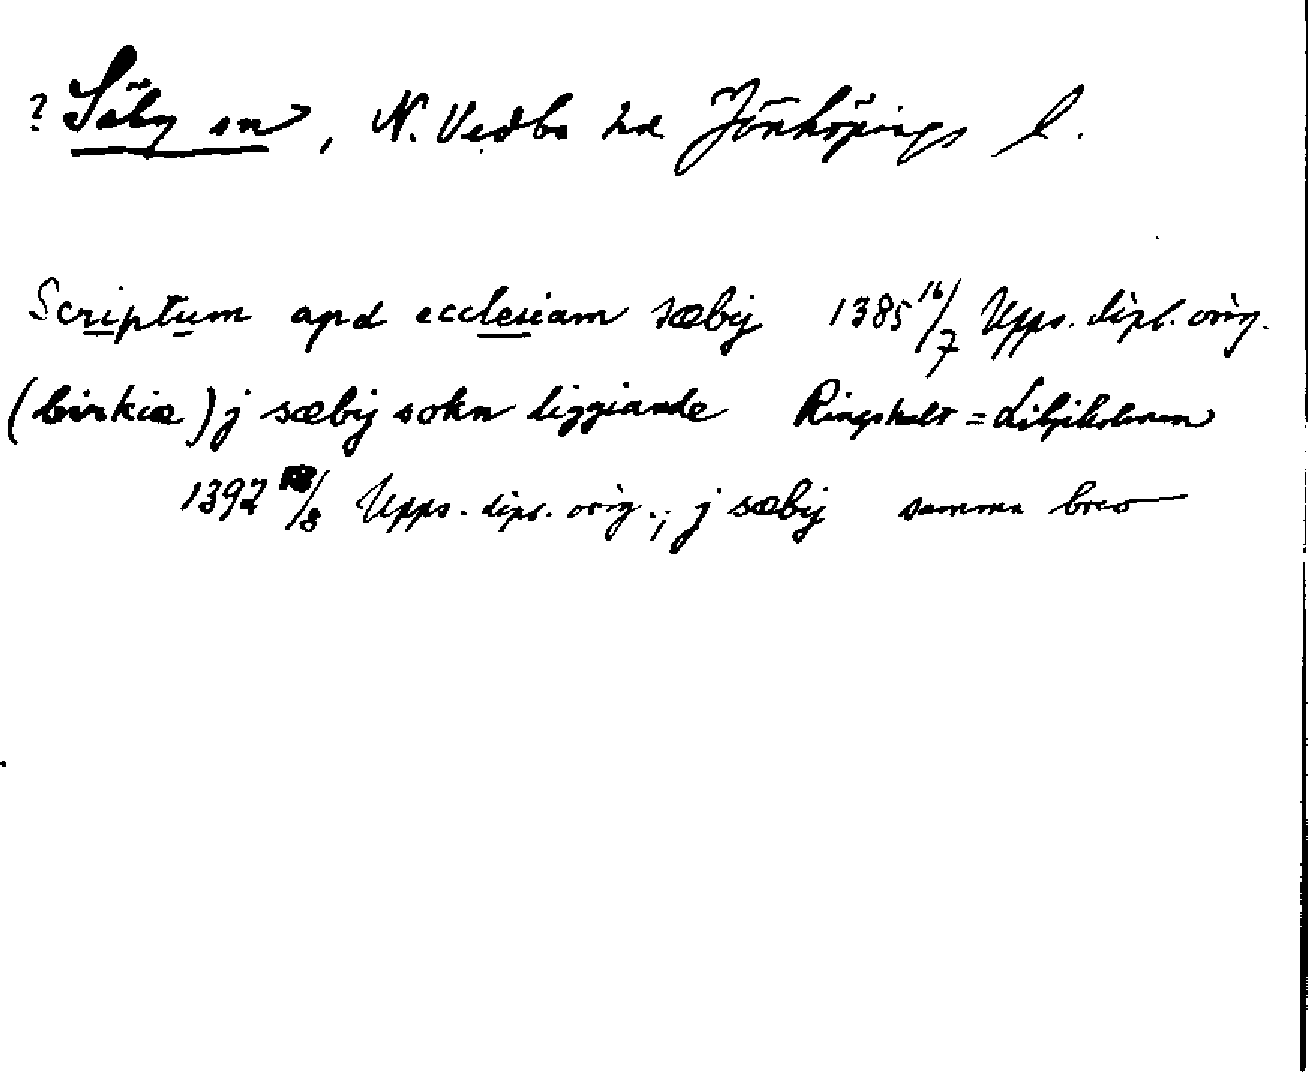 ? Säby sn, N. Vedbo hd Jönköpings l.
Scriptum apd ecclesiam sæbij 1385 16/7 Upps. dipl. orig.
(birkiæ) j sæbij sokn liggiande Ringshult =
1392 /8 Upps. dipl. orig.; j sæbij samma brev